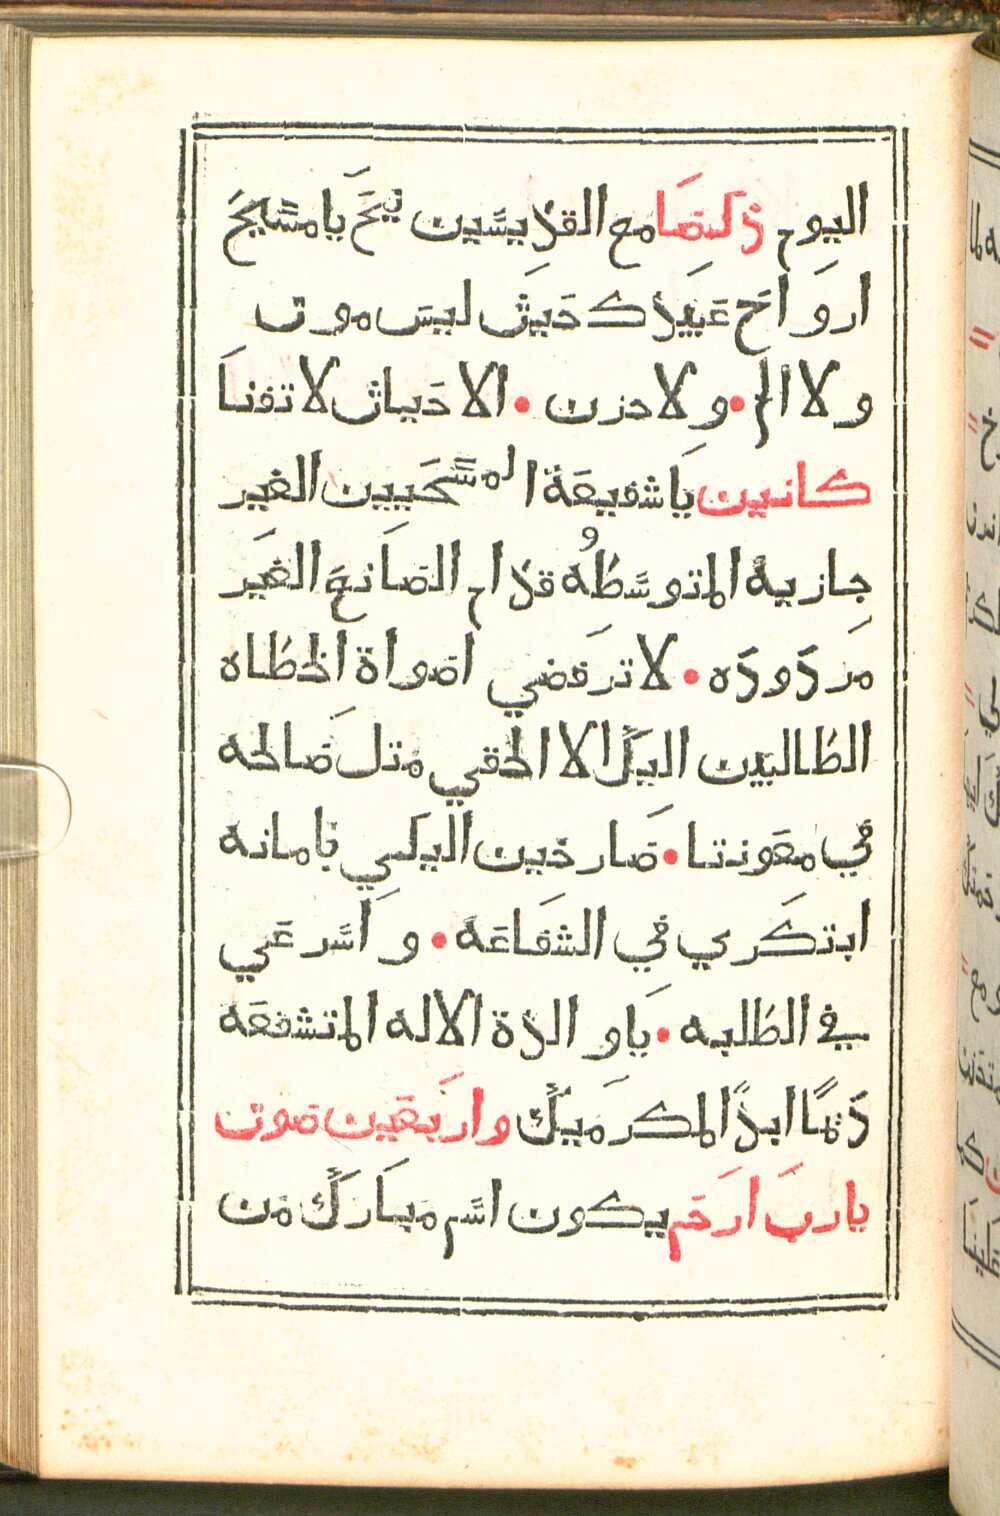 اليوم ذكصا مع القديسين نيح يا مسيح
ارواح عبيدك حيث ليس موت
ولا الم • ولا حزن • الا حياث لا تفنا
كانين يا شفيعة المسحيين الغير
جازية المتوسطه قدام الصانع الغير
مردوده • لا ترفضي اصواة الخطاه
الطالبين اليك الا الحقي متل صالحه
في معونتنا • صارخين اليكي بامانه
ابتكري في الشفاعه • واسرعي
في الطلبه • يا والدة الاله المتشفعه
دئمًا ابدًا المكرميك واربعين صوت
يا رب ارحم يكون اسم مبارك من